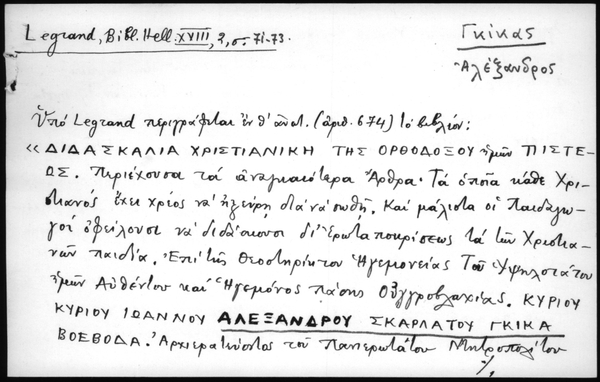 Legrand, Bibl. Hell. XVIII, 2, σ. 71-73.
Γκίκας
Ἀλέξανδρος
Ὑπό Legrand περιγράφεται ἐν (ἀριθ. 674) τό βιβλίον:
«ΔΙΔΑΣΚΑΛΙΑ ΧΡΙΣΤΙΑΝΙΚΗ ΤΗΣ ΟΡΘΟΔΟΞΟΥ ἡμῶν ΠΙΣΤΕ-
ΩΣ. Περιέχουσα τά ἀναγκαιότερα Ἄρθρα. Τά ὁποῖα κάθε Χρι-
στιανός ἔχει χρέος νά ἠξεύρῃ διά νά σωθῇ. Καί μάλιστα οἱ Παιδαγω-
γοί ὀφείλουσι νά διδάσκουσι δι' Ἐρωταποκρίσεως τά τῶν Χριστια-
νῶν παιδία. Ἐπί τῆς Θεοστηρίκτου Ἡγεμονείας Τοῦ Ὑψηλοτάτου
ἡμῶν Αὐθέντου καί Ἡγεμόνος πάσης Οὑγγροβλαχίας. ΚΥΡΙΟΥ
ΚΥΡΙΟΥ ΙΩΑΝΝΟΥ ΑΛΕΞΑΝΔΡΟΥ ΣΚΑΡΛΑΤΟΥ ΓΚΙΚΑ
ΒΟΕΒΟΔΑ. Ἀρχιερατεύοντος τοῦ Πανιερωτάτου Μητροπολίτου
·/.